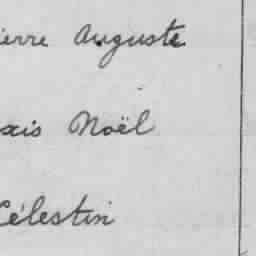 ierre Auguste
xis Noël
Célestin